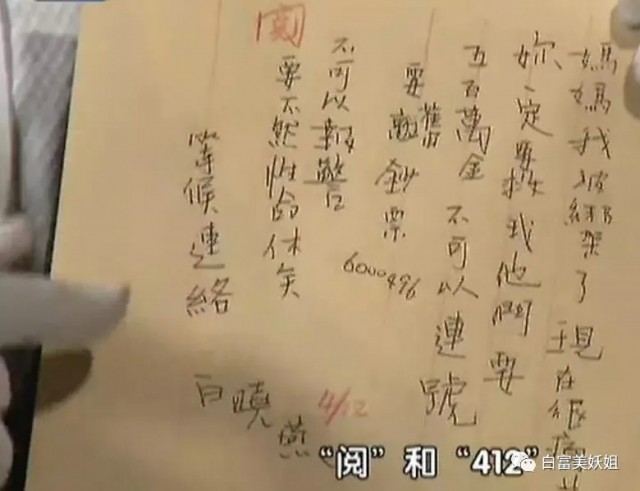 媽媽我被綁架了現在很痛苦
妳一定要救我他們要
五百萬金 不可以連號
要舊鈔票
6000496
不可以報警
要不然性命休矣
等候連絡
白曉燕
閱
4/12
“阅”和“412”
白富美妖姐